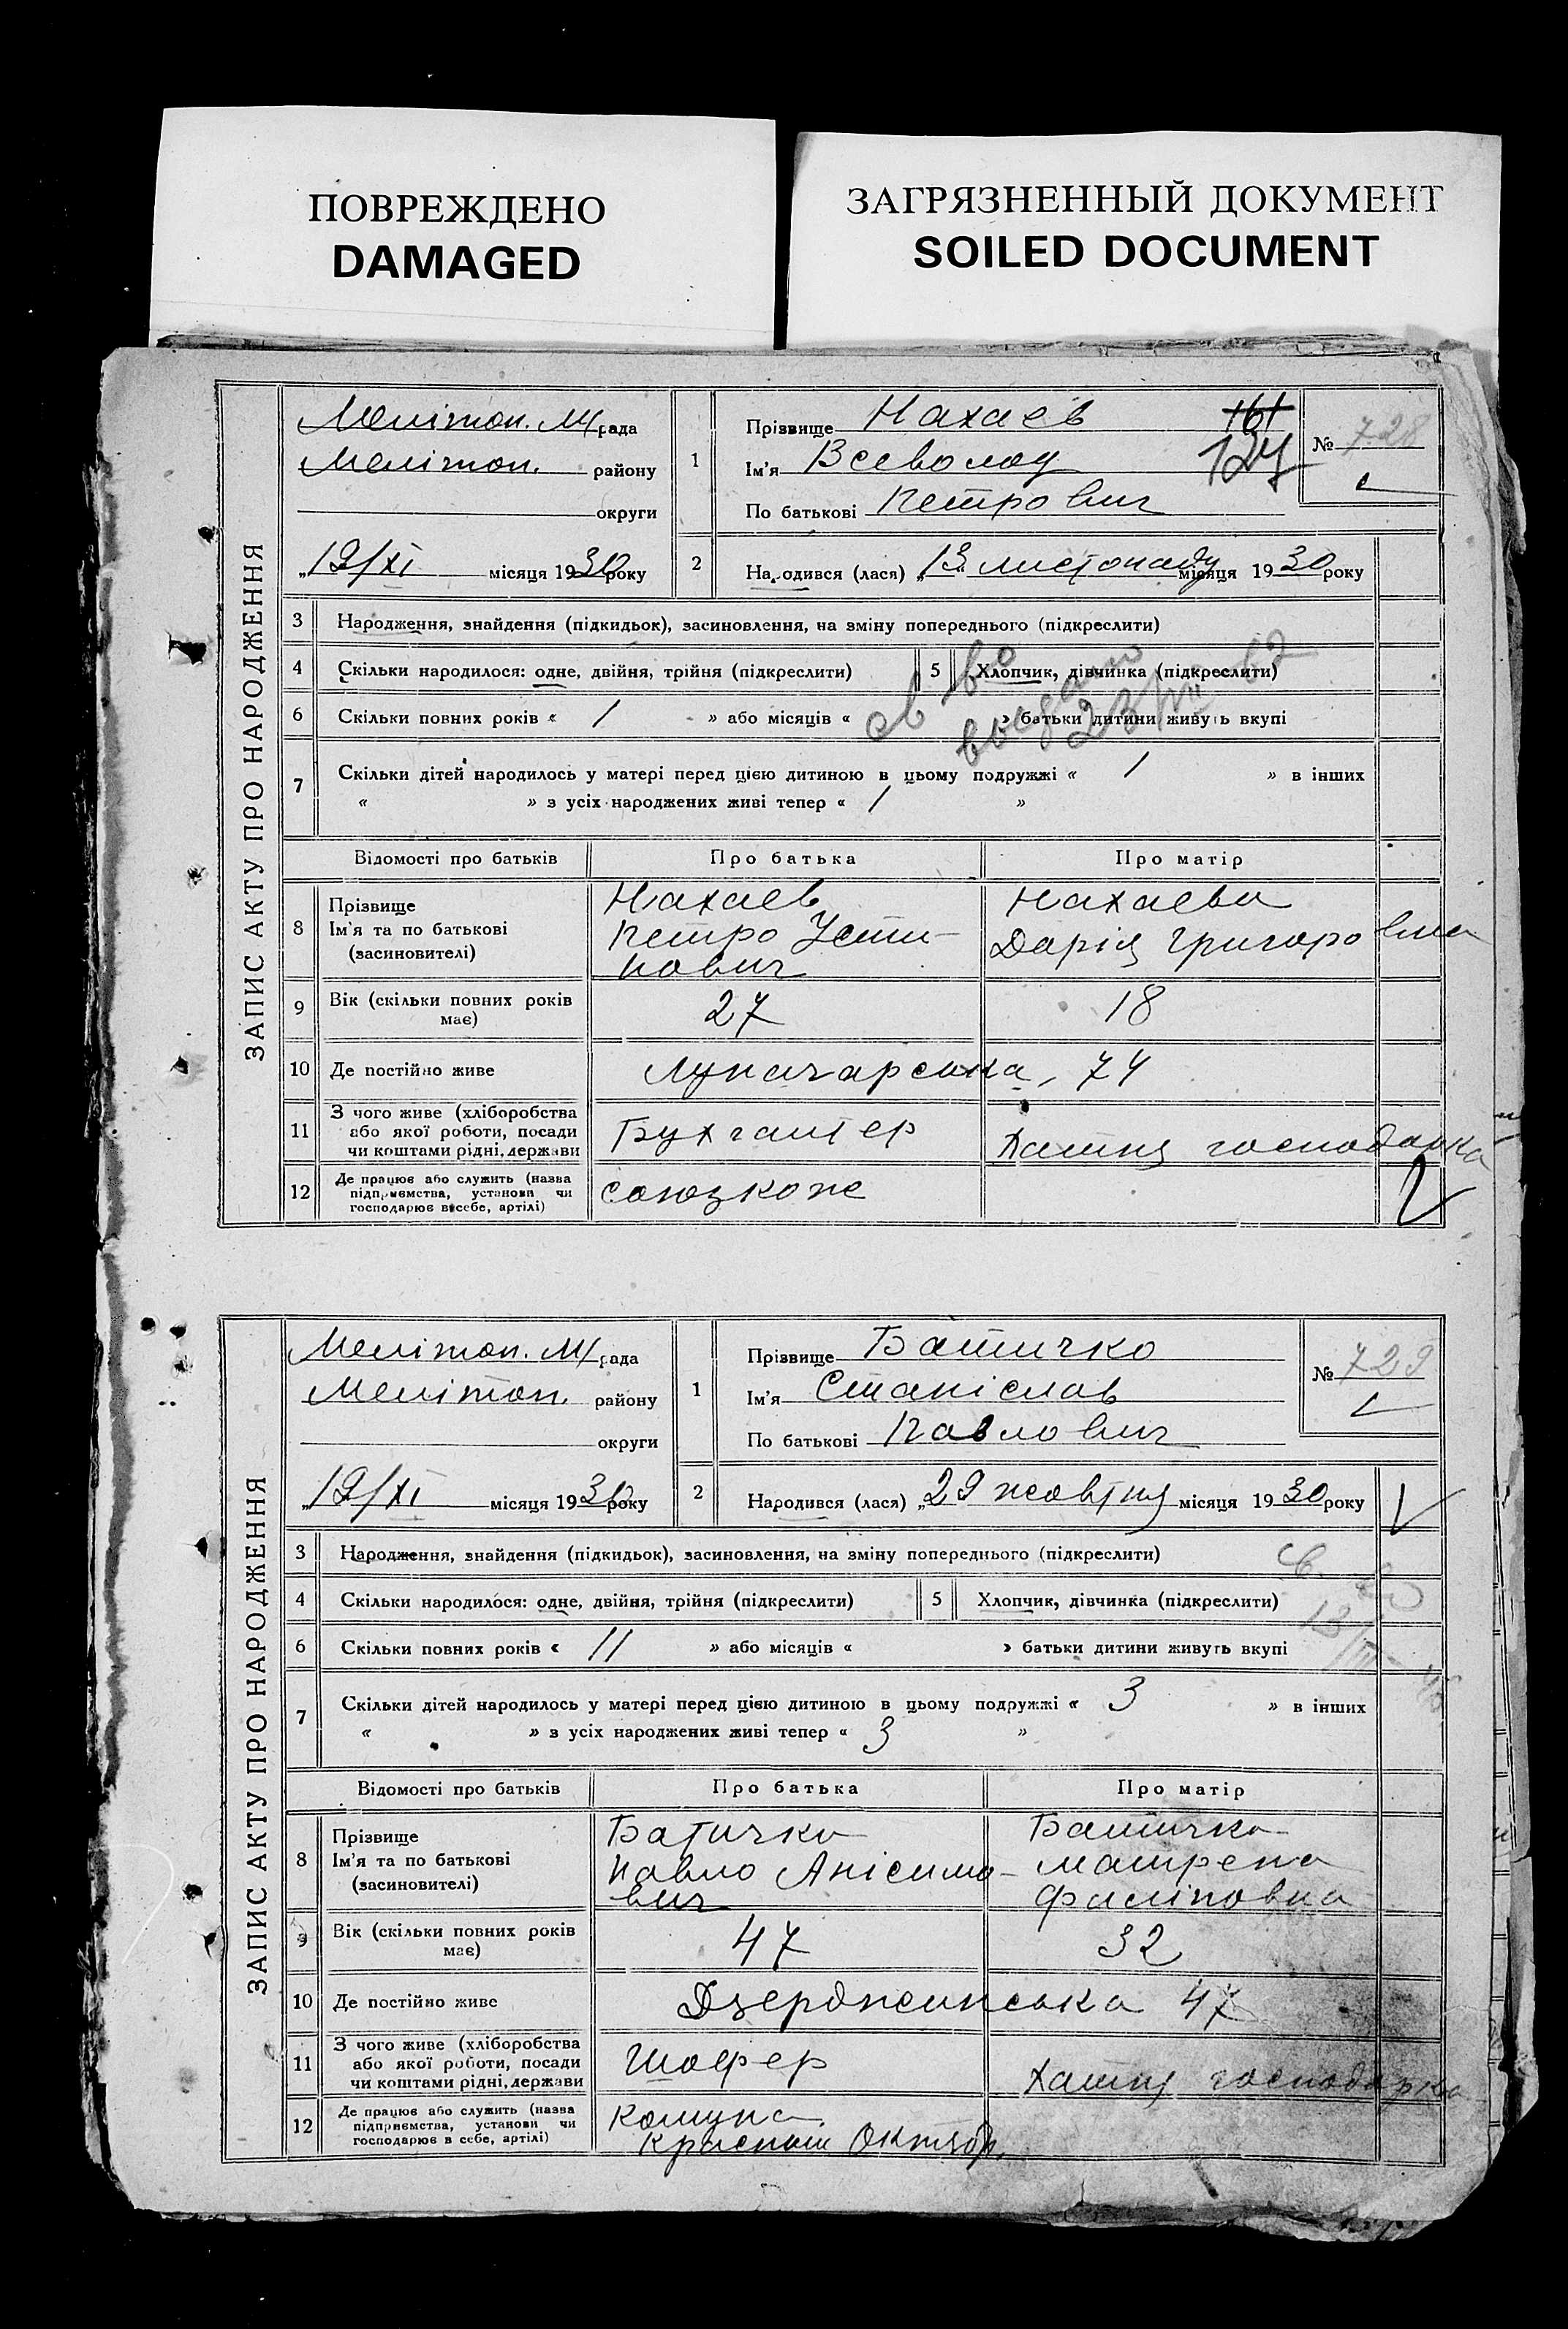 ПОВРЕЖДЕНО
DAMAGED
ЗАГРЯЗНЕННЫЙ ДОКУМЕНТ
SOILED DOCUMENT
ЗАПИС АКТУ ПРО НАРОДЖЕННЯ
Мелітоп. М/рада
Мелітоп. району
округи
„19/XI місяця 1930 року
1
Прізвище Нахаєв
Ім'я Всеволод
По батькові Петрович
161
127
№ 728
2
Народився (лася) „13 листопаду місяця 1930 року
3 Народження, знайдення (підкидьок), засиновлення, на зміну попереднього (підкреслити)
4 Скільки народилося: одне, двійня, трійня (підкреслити) 5 Хлопчик, дівчинка (підкреслити)
6 Скільки повних років « 1 » або місяців « » батьки дитини живуть вкупі
св во
видано
23/VII 62
7 Скільки дітей народилось у матері перед цією дитиною в цьому подружжі « 1 » в інших
« » з усіх народжених живі тепер « 1 »
Відомості про батьків Про батька Про матір
8 Прізвище
Ім'я та по батькові
(засиновителі)
Нахаєв
Петро Усти-
нович
Нахаєва
Дарія Григоровна
9 Вік (скільки повних років
має)
27 18
10 Де постійно живе Луначарська, 74
11 З чого живе (хліборобства
або якої роботи, посади
чи коштами рідні, держави
Бухгалтер Хатня господарка
12 Де працює або служить (назва
підприємства, установи чи
господарює в себе, артілі)
Союзкож
ЗАПИС АКТУ ПРО НАРОДЖЕННЯ
Мелітоп. М/рада
Мелітоп. району
округи
„19/XI місяця 1930 року
1
Прізвище Батичко
Ім'я Станіслав
По батькові Павлович
№ 729
2
Народився (лася) „29 жовтня місяця 1930 року
3 Народження, знайдення (підкидьок), засиновлення, на зміну попереднього (підкреслити)
4 Скільки народилося: одне, двійня, трійня (підкреслити) 5 Хлопчик, дівчинка (підкреслити)
6 Скільки повних років « 11 » або місяців « » батьки дитини живуть вкупі
7 Скільки дітей народилось у матері перед цією дитиною в цьому подружжі « 3 » в інших
« » з усіх народжених живі тепер « 3 »
Відомості про батьків Про батька Про матір
8 Прізвище
Ім'я та по батькові
(засиновителі)
Батичко
Павло Анісимо-
вич
Батичко
Матрена
Филіповна
9 Вік (скільки повних років
має)
47 32
10 Де постійно живе Дзержинська 47
11 З чого живе (хліборобства
або якої роботи, посади
чи коштами рідні, держави
Шофер Хатня господарка
12 Де працює або служить (назва
підприємства, установи чи
господарює в себе, артілі)
Комуна
Красный Октябр.